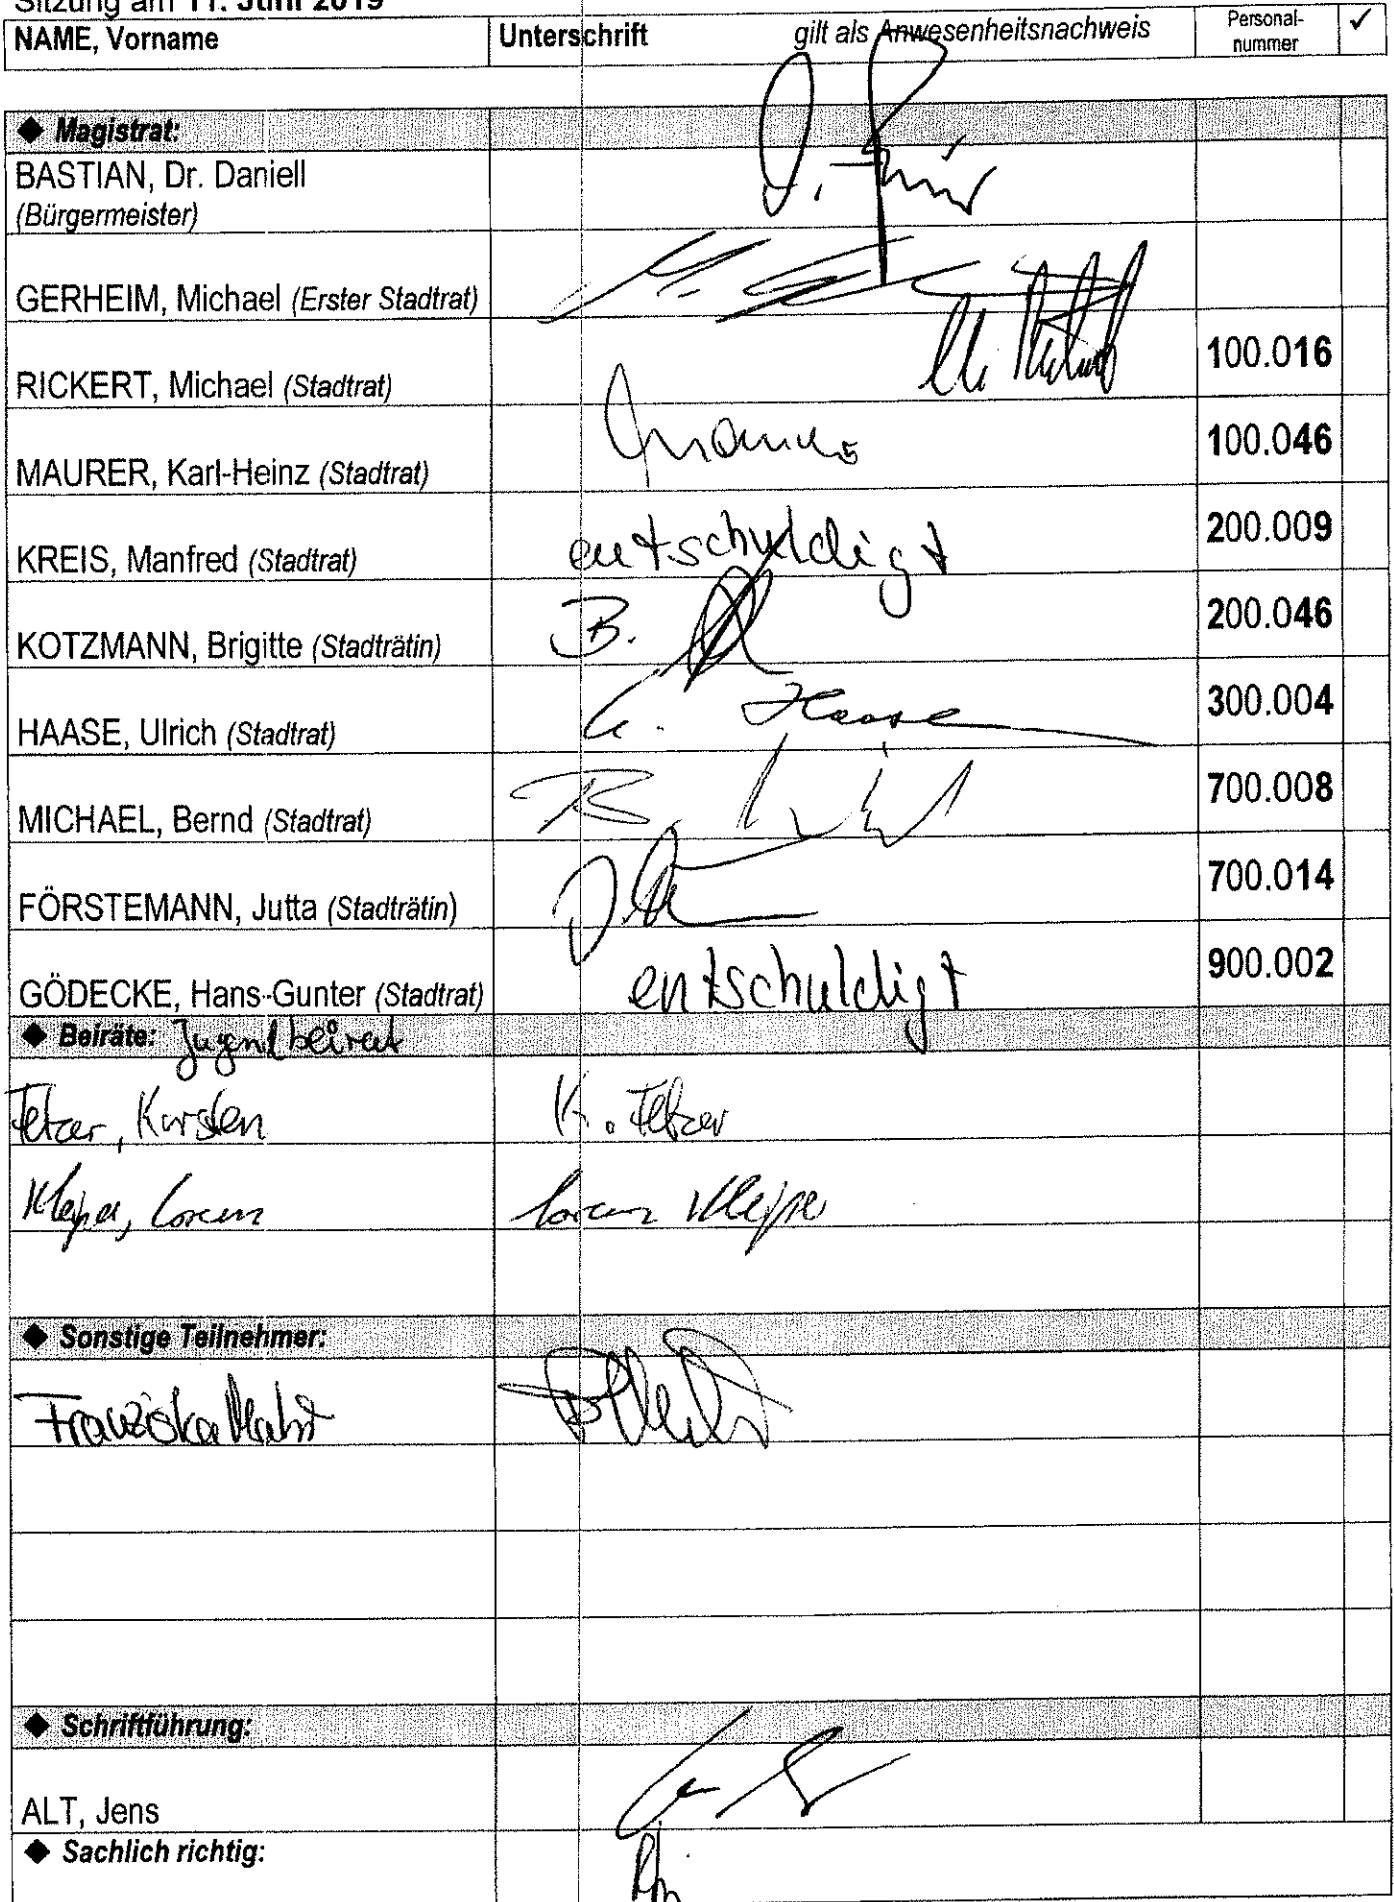 Sitzung am 11. Juni 2019
NAME, Vorname Unterschrift gilt als Anwesenheitsnachweis Personal-
nummer ✓
◆ Magistrat:
BASTIAN, Dr. Daniell
(Bürgermeister)
GERHEIM, Michael (Erster Stadtrat)
RICKERT, Michael (Stadtrat) 100.016
MAURER, Karl-Heinz (Stadtrat) 100.046
KREIS, Manfred (Stadtrat) entschuldigt 200.009
KOTZMANN, Brigitte (Stadträtin) B. 200.046
HAASE, Ulrich (Stadtrat) U. Haase 300.004
MICHAEL, Bernd (Stadtrat) 700.008
FÖRSTEMANN, Jutta (Stadträtin) 700.014
GÖDECKE, Hans-Gunter (Stadtrat) entschuldigt 900.002
◆ Beiräte: Jugendbeirat
Fetzer, Karsten K. Fetzer
◆ Sonstige Teilnehmer:
Franziska
◆ Schriftführung:
ALT, Jens
◆ Sachlich richtig: